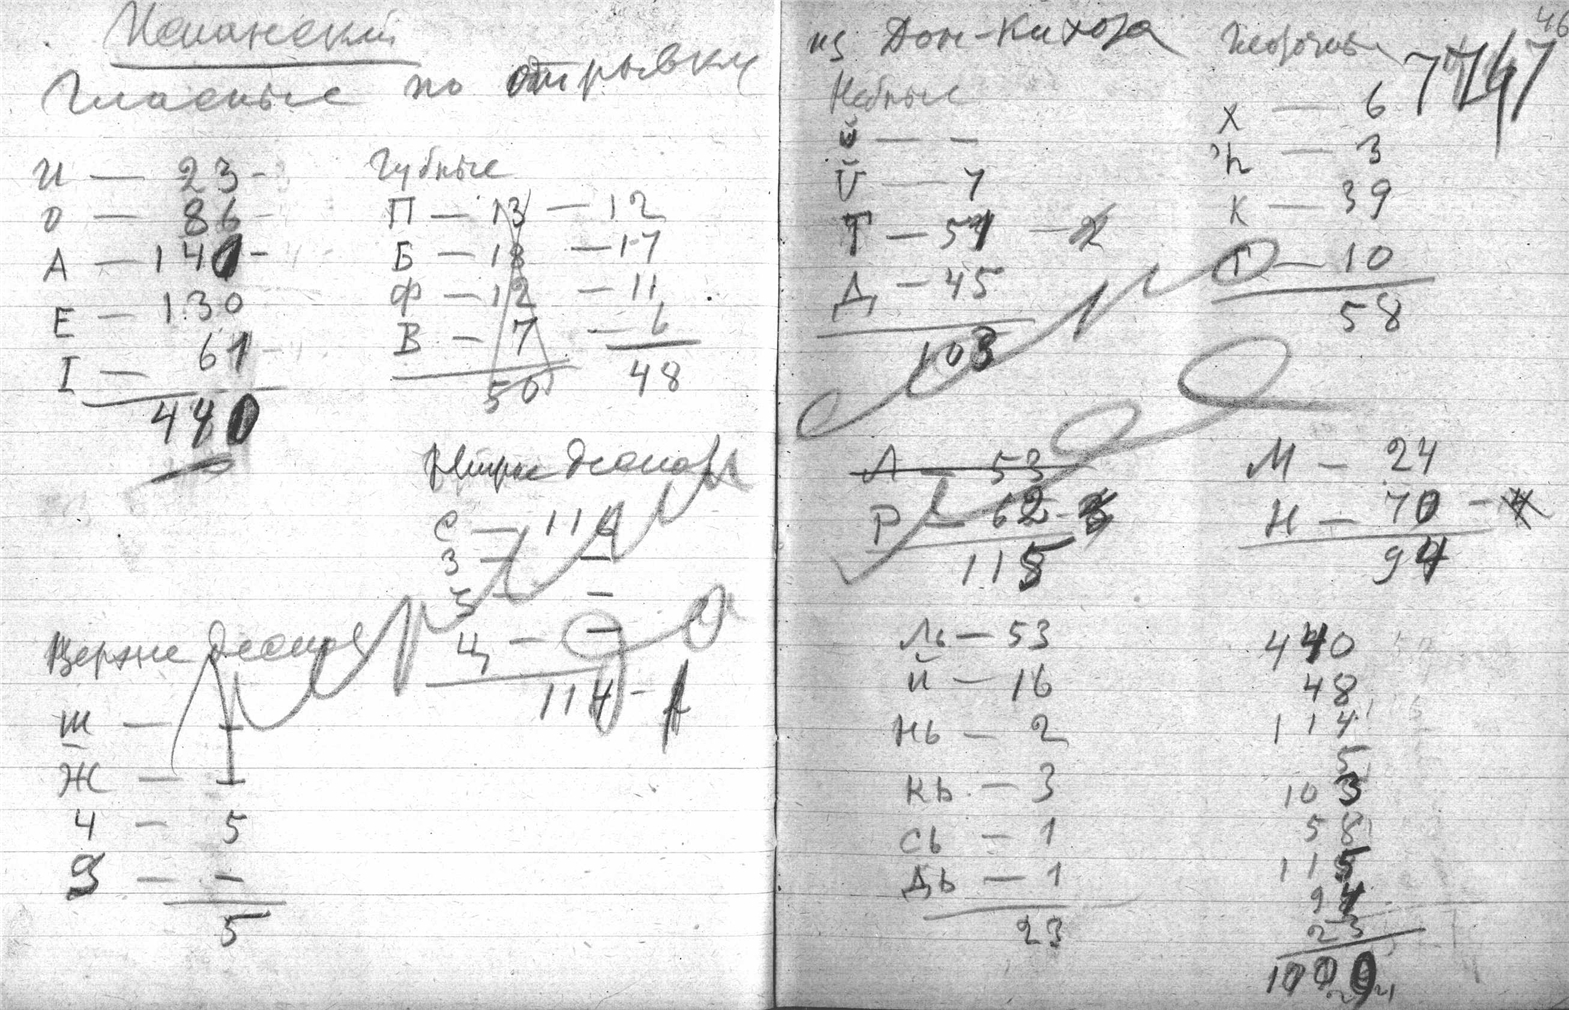 Испанский
Гласные по отрывку
И — 23 -
О — 86 -
А — 140 -
Е — 130
I — 61
440
Губные
П — 13 — 12
Б — 18 — 17
Ф — 12 — 11
В — 7 — 6
50 48
С — 114
З — –
Ц — –
114 -
Верхне
Ш — –
Ж — –
Ч — 5
– –
5
из Дон-Кихота
Небные
– –
7
Т — 51
Д — 45
103
Л — 53
Р — 62
115
Ль — 53
Й — 16
Нь — 2
Кь — 3
Сь — 1
Дь — 1
23
46
7747
Х — 6
h — 3
К — 39
Г — 10
58
М — 24
Н — 70
94
440
48
114
5
103
58
115
94
23
1000